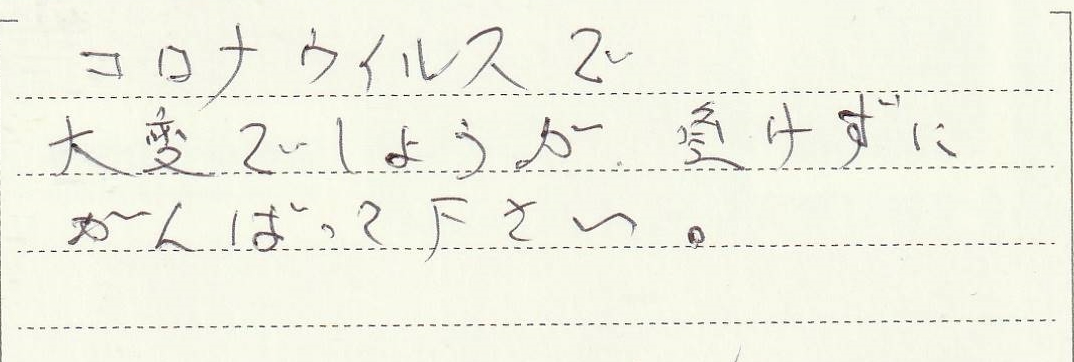 コロナウイルスで
大変でしようが、負けずに
がんばって下さい。